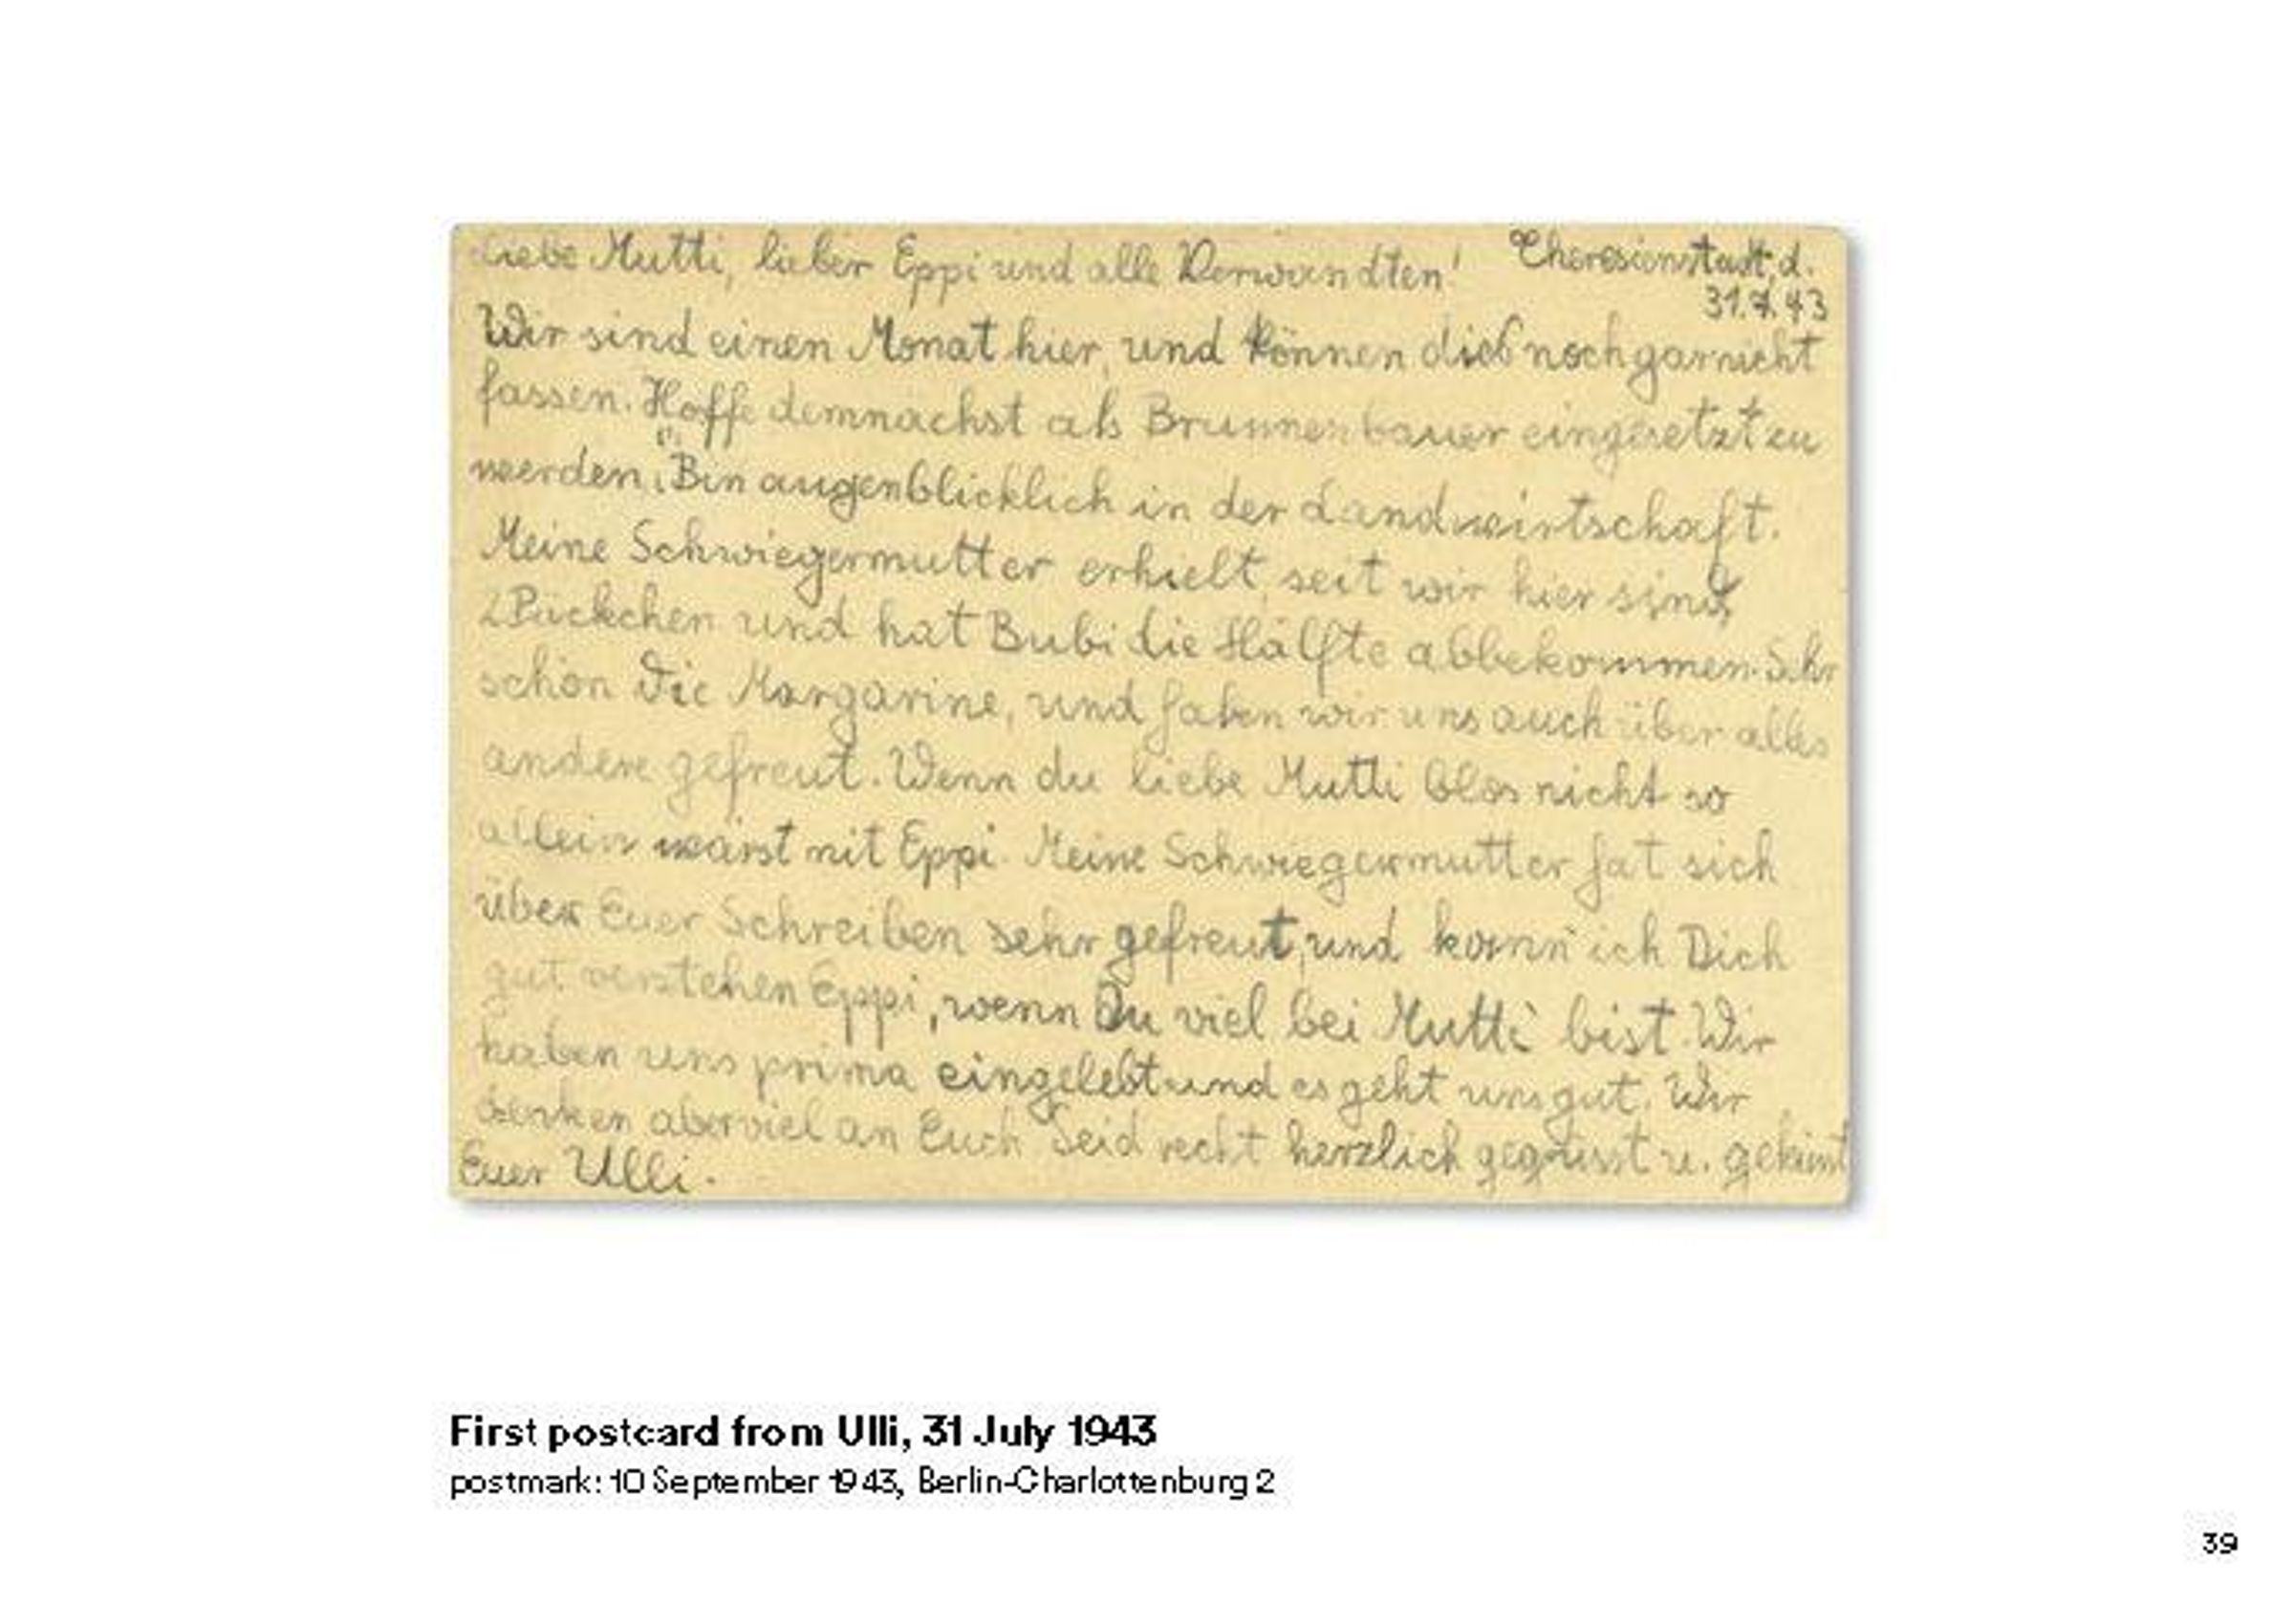 Liebe Mutti, lieber Eppi und alle Verwandten! Theresienstadt, d.
31.7.43
Wir sind einen Monat hier, und können dieß noch garnicht
fassen. Hoffe demnächst als Brunnenbauer eingesetzt zu
werden. Bin augenblicklich in der Landwirtschaft.
Meine Schwiegermutter erhielt, seit wir hier sind,
2 Päckchen und hat Bubi die Hälfte abbekommen. Sehr
schön die Margarine, und haben wir uns auch über alles
andere gefreut. Wenn du liebe Mutti blos nicht so
allein wärst mit Eppi. Meine Schwiegermutter hat sich
über Euer Schreiben sehr gefreut, und kann ich Dich
gut verstehen Eppi, wenn Du viel bei Mutti bist. Wir
haben uns prima eingelebt und es geht uns gut. Wir
denken aber viel an Euch. Seid recht herzlich gegrüsst u. geküsst
Euer Ulli.
First postcard from Ulli, 31 July 1943
postmark: 10 September 1943, Berlin-Charlottenburg 2
39